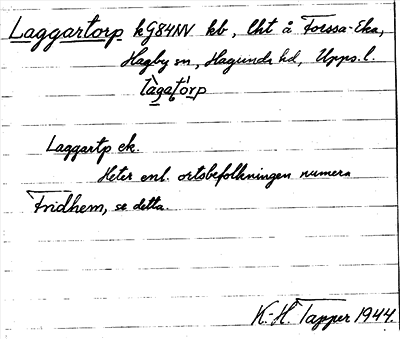 Laggartorp kG84NV kb, lht å Forssa-Eka,
Hagby sn, Hagunda hd, Upps.l.
làgató̀rp
Laggartp ek.
Heter enl. ortsbefolkningen numera
Fridhem, se detta.
K.-H. Tapper 1944.